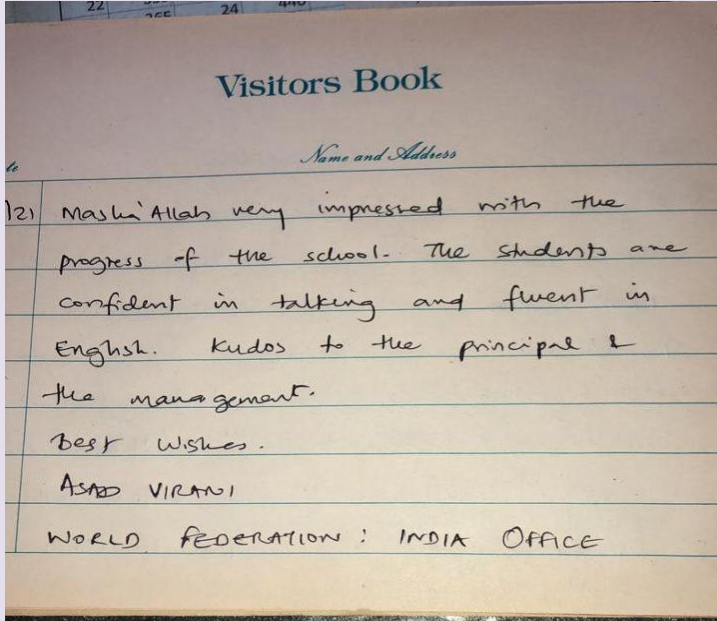 22 24 440
Visitors Book
Name and Address
/21 Masha'Allah very impressed with the
progress of the school. The students are
confident in talking and fluent in
English. Kudos to the principal &
the management.
Best Wishes.
ASAD VIRANI
WORLD FEDERATION: INDIA OFFICE